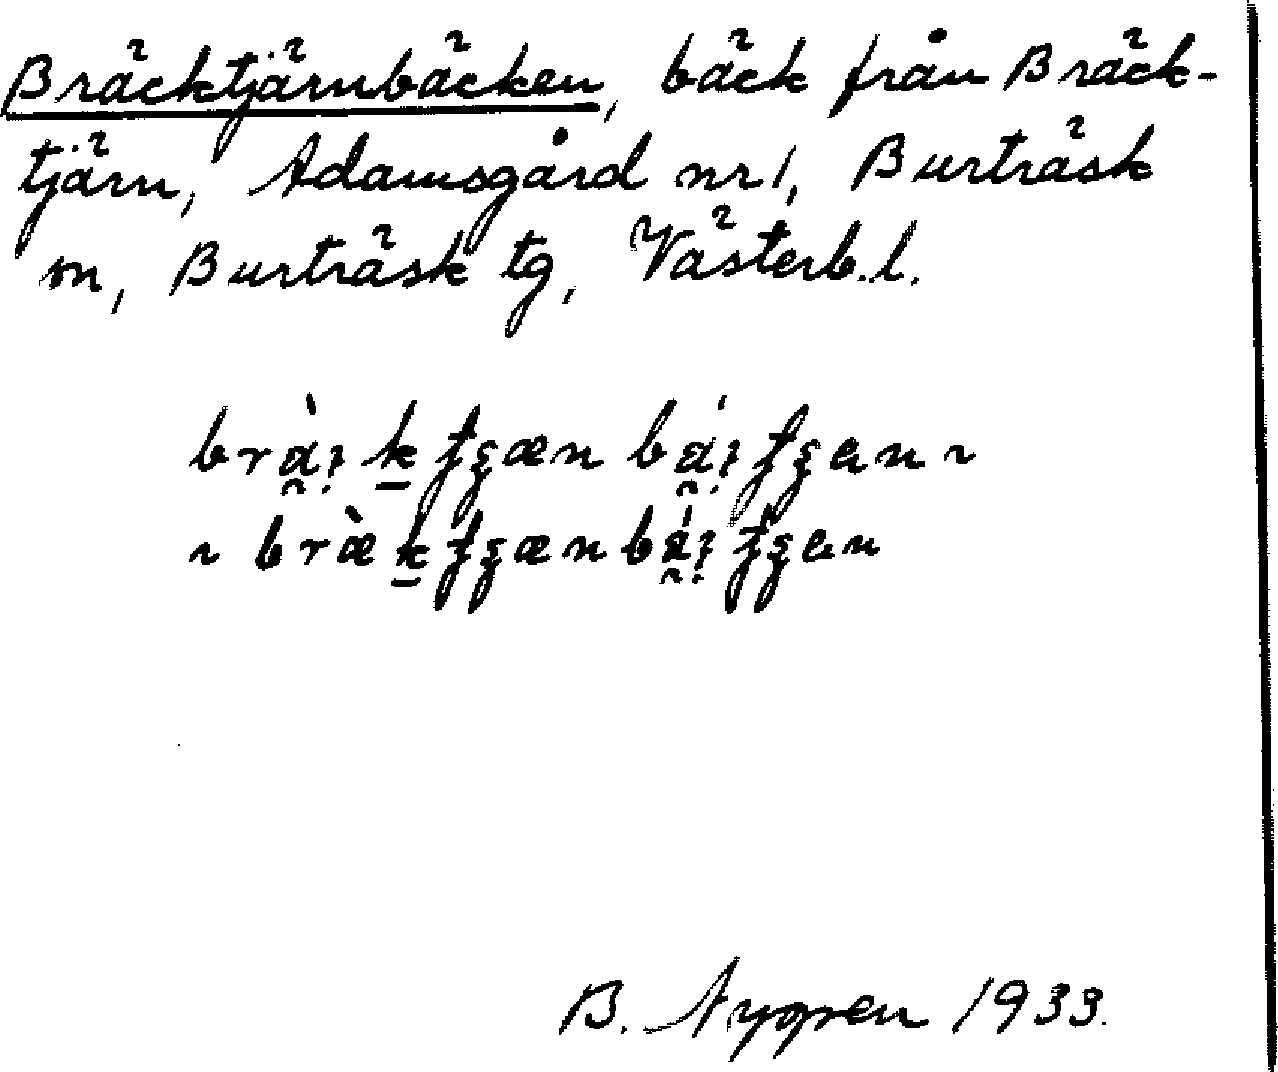 Bräcktjärnbäcken, bäck från Bräck-
tjärn, Adamsgård nr 1, Burträsk
m, Burträsk tg, Västerb.l.
B. Nygren 1933.